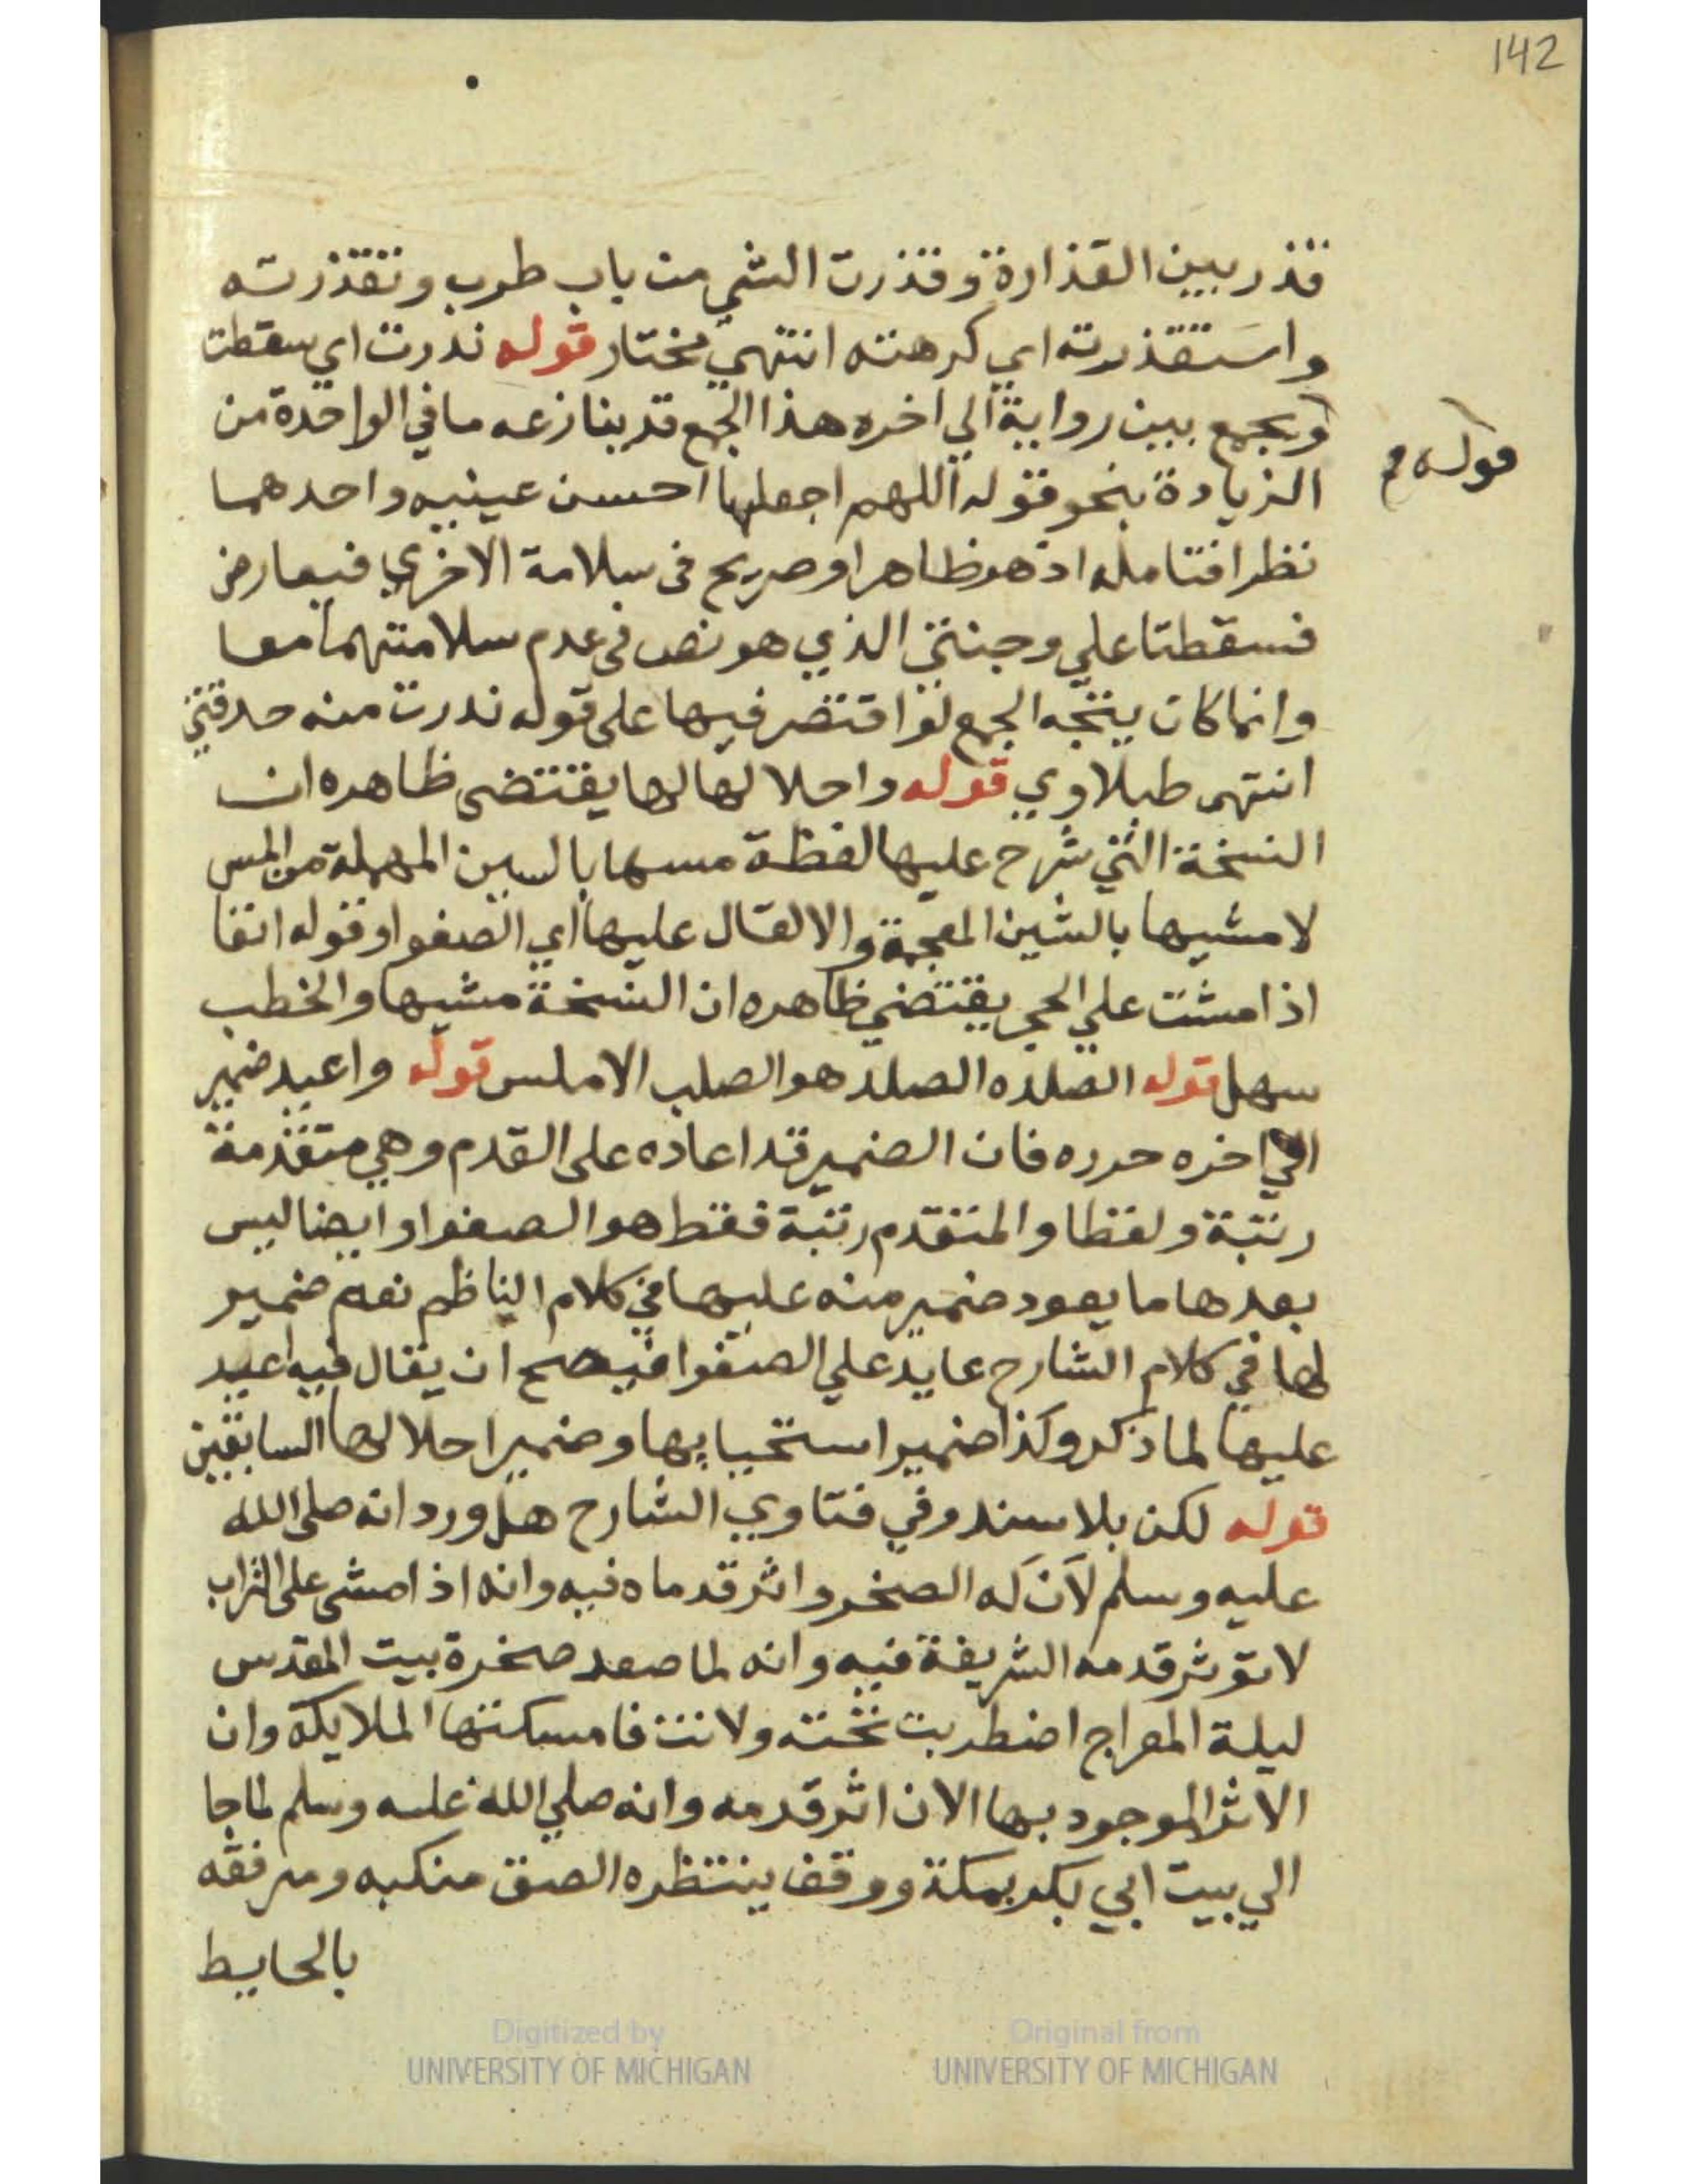 142
قذر بين القذارة وقذرت الشي من باب طرب وتقذرته
واستقذرته اي كرهته انتهي مختار قوله ندرت اي سقطت
ويجمع بين رواية الي اخره هذا الجمع قد ينازعه ما في الواحدة من
قوله م
الزيادة بنحو قوله اللهم اجعلها احسن عينيه واحدهما
نظرا فتامله اذ هو ظاهر او صريح في سلامة الاخري فيعارض
فسقطتا علي وجنتي الذي هو نص في عدم سلامتهما معا
وانما كان يتجه الجمع لو اقتصر فيها على قوله ندرت منه حدقتي
انتهى طبلاوي قوله واجلالها لها يقتضى ظاهره ان
النسخة التي شرح عليها لفظة مسها بالسين المهملة من المس
لا مشيها بالشين المعجمة والا لقال عليها اي الصفوا وقوله انفا
اذا مشت علي الحجر يقتضي ظاهره ان النسخة مشيها والخطب
سهل قوله الصلده الصلد هو الصلب الاملس قوله واعيد ضمير
الي اخره حرره فان الضمير قد اعاده على القدم وهي متقدمة
رتبة ولفظا والمتقدم رتبة فقط هو الصفوا وايضا ليس
بعدها ما يعود ضمير منه عليها في كلام الناظم نعم ضمير
لها في كلام الشارح عايد علي الصفوا فيصح ان يقال فيه اعيد
عليها لما ذكر وكذا ضمير استحيابها وضمير اجلالها السابقين
قوله لكن بلا سند وفي فتاوي الشارح هل ورد انه صلى الله
عليه وسلم لان له الصخر واثر قدماه فيه وانه اذا مشى على التراب
لا تؤثر قدمه الشريفة فيه وانه لما صعد صخرة بيت المقدس
ليلة المعراج اضطربت تحته ولانت فامسكتها الملايكة وان
الاثر الموجود بها الان اثر قدمه وانه صلي الله عليه وسلم لما جا
الي بيت ابي بكر بمكة ووقف ينتظره الصق منكبه ومرفقه
بالحايط
Digitized by
UNIVERSITY OF MICHIGAN
Original from
UNIVERSITY OF MICHIGAN